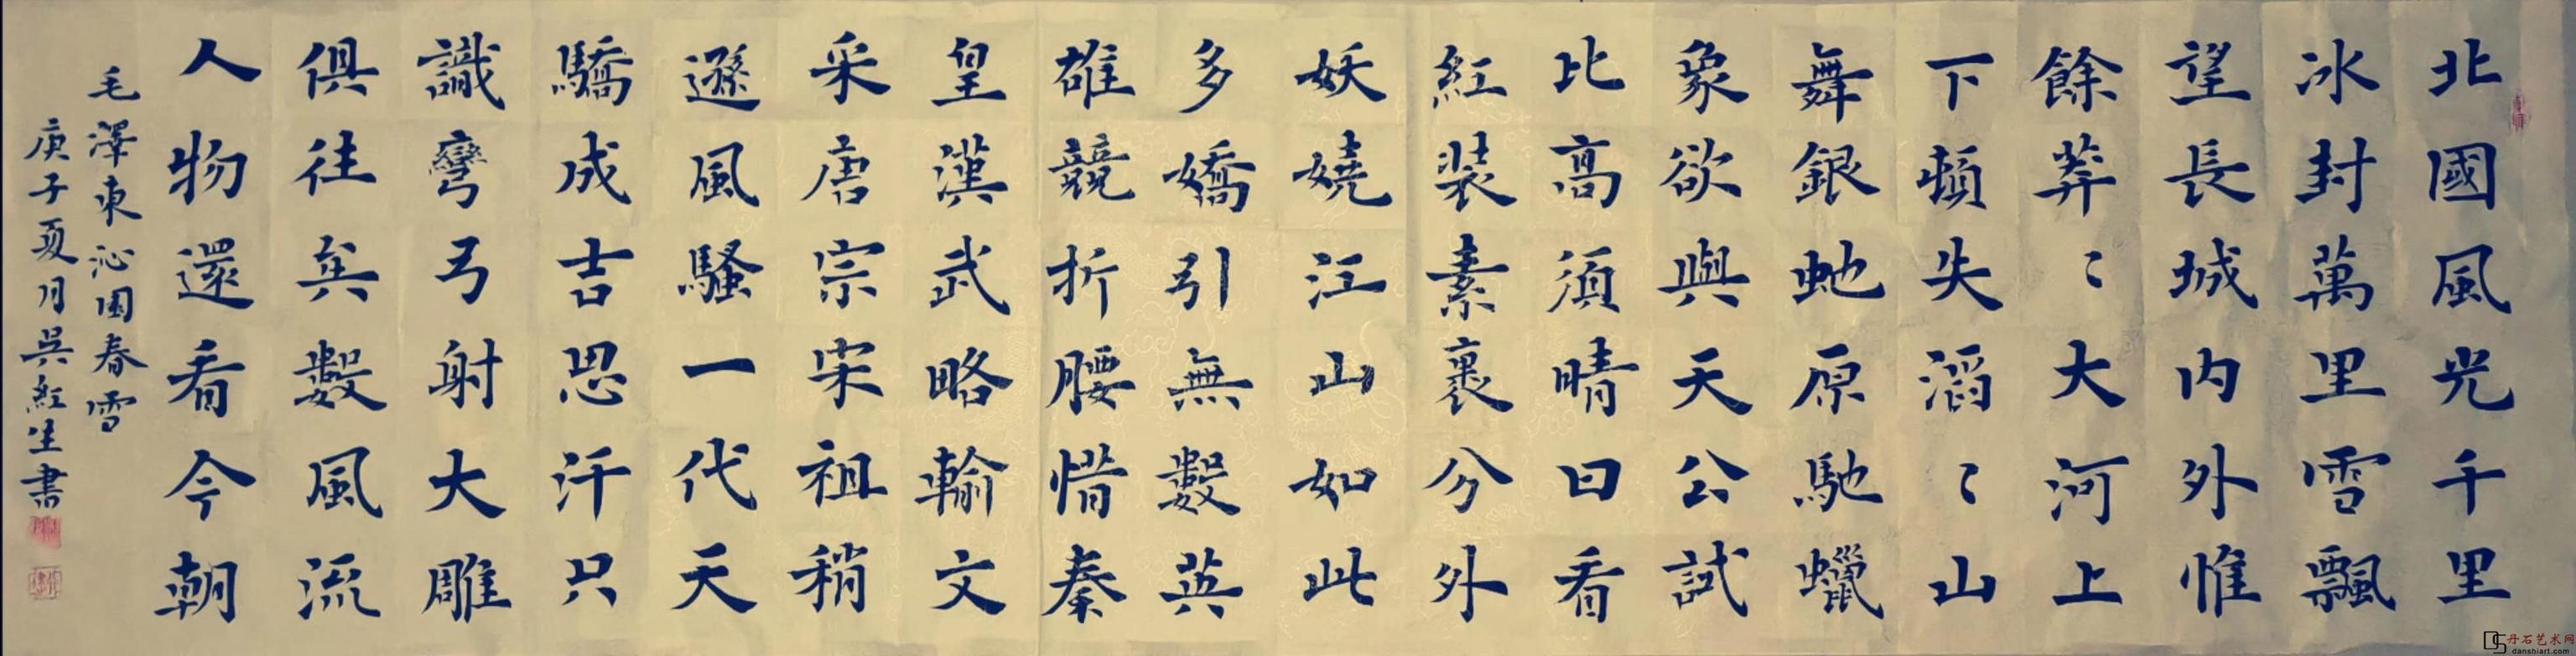 北國風光千里
冰封萬里雪飄
望長城内外惟
餘莽〻大河上
下頓失滔〻山
舞銀虵原馳蠟
象欲與天公試
比高須晴日看
紅装素裹分外
妖嬈江山如此
多嬌引無數英
雄競折腰惜秦
皇漢武略輸文
采唐宗宋祖稍
遜風騷一代天
驕成吉思汗只
識彎弓射大雕
俱往矣數風流
人物還看今朝
毛澤東沁園春雪
庚子夏月吳紅生書
丹石艺术网
danshiart.com